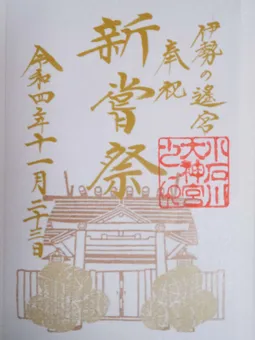 伊勢の遙宮
奉祝
新嘗祭
令和四年十一月二十三日
小石川
大神宮